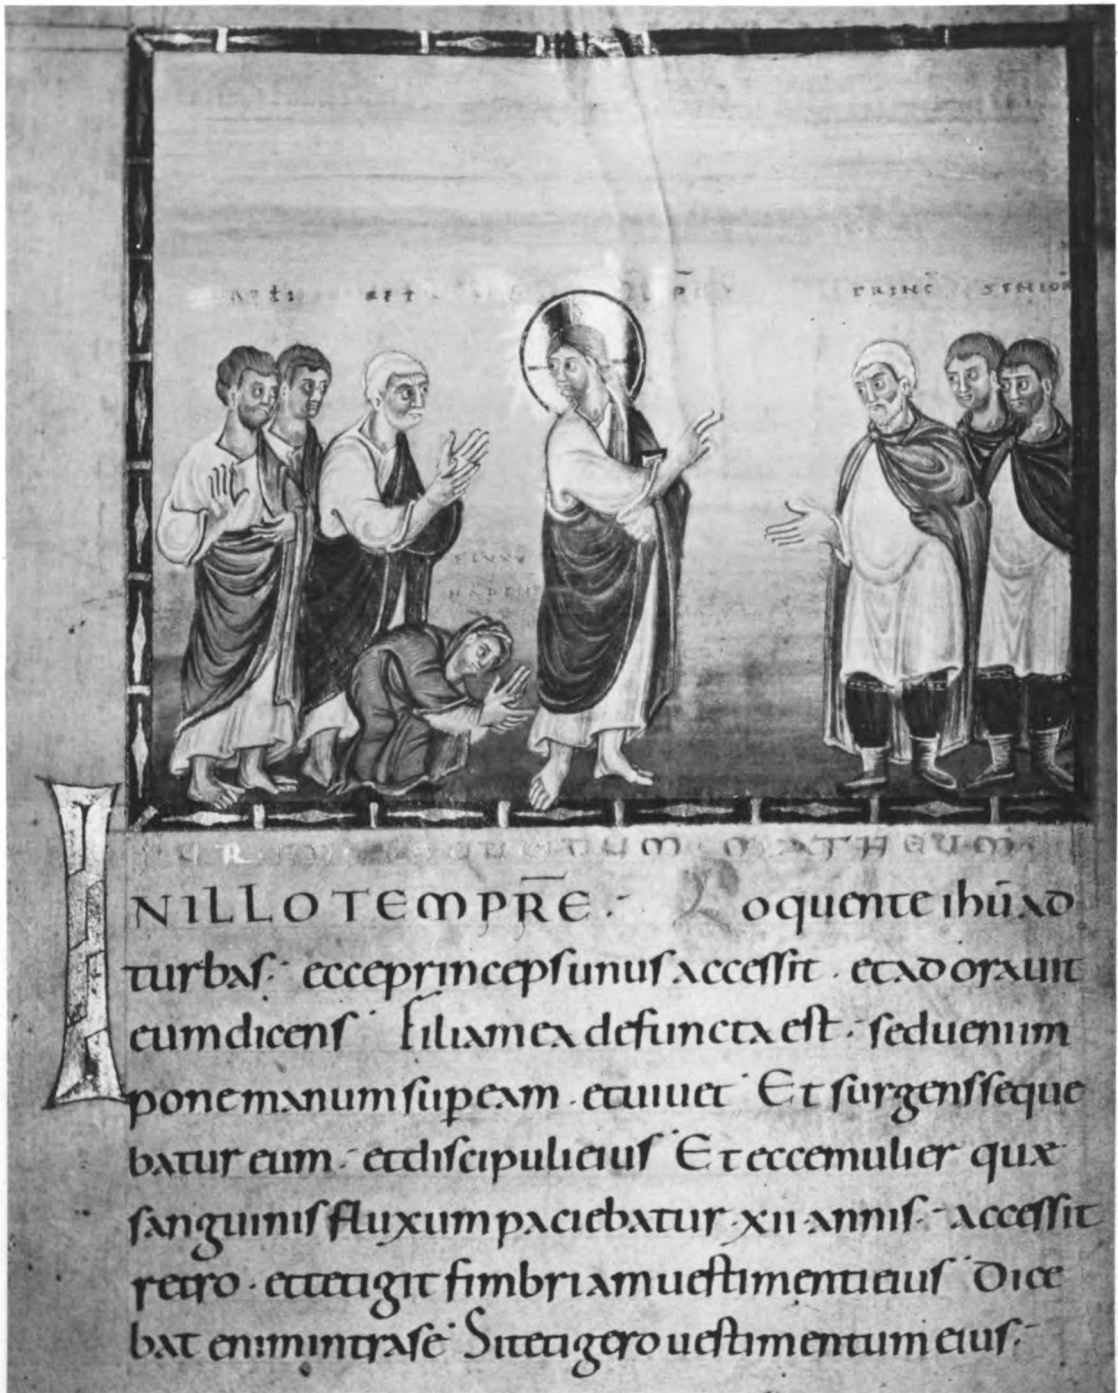 PRINC̄ SENIOR
SECUNDUM MATHEUM
IN ILLO TEMPR̄E. Loquente ihū ad
turbas. ecce princeps unus accessit. et adorauit
eum dicens. Filia mea defuncta est. sed ueni im
pone manum sup eam. et uiuet. Et surgens seque
batur eum. et discipuli eius. Et ecce mulier quae
sanguinis fluxum paciebatur .xii. annis. accessit
retro. et tetigit fimbriam uestimenti eius. Dice
bat enim intra se. Si tetigero uestimentum eius.